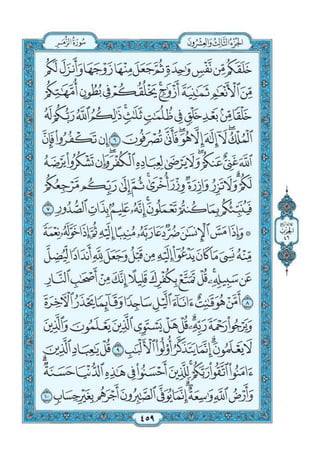 الجزء الثالث والعشرون
سورة الزمر
خَلَقَكُم مِّن نَّفْسٍ وَٰحِدَةٍ ثُمَّ جَعَلَ مِنْهَا زَوْجَهَا وَأَنزَلَ لَكُم
مِّنَ ٱلْأَنْعَٰمِ ثَمَٰنِيَةَ أَزْوَٰجٍ يَخْلُقُكُمْ فِى بُطُونِ أُمَّهَٰتِكُمْ
خَلْقًا مِّنۢ بَعْدِ خَلْقٍ فِى ظُلُمَٰتٍ ثَلَٰثٍ ذَٰلِكُمُ ٱللَّهُ رَبُّكُمْ لَهُ
ٱلْمُلْكُ لَآ إِلَٰهَ إِلَّا هُوَ فَأَنَّىٰ تُصْرَفُونَ ٦ إِن تَكْفُرُوا۟ فَإِنَّ
ٱللَّهَ غَنِىٌّ عَنكُمْ وَلَا يَرْضَىٰ لِعِبَادِهِ ٱلْكُفْرَ وَإِن تَشْكُرُوا۟ يَرْضَهُ
لَكُمْ وَلَا تَزِرُ وَازِرَةٌ وِزْرَ أُخْرَىٰ ثُمَّ إِلَىٰ رَبِّكُم مَّرْجِعُكُمْ
فَيُنَبِّئُكُم بِمَا كُنتُمْ تَعْمَلُونَ إِنَّهُۥ عَلِيمٌۢ بِذَاتِ ٱلصُّدُورِ ٧
۞ وَإِذَا مَسَّ ٱلْإِنسَٰنَ ضُرٌّ دَعَا رَبَّهُۥ مُنِيبًا إِلَيْهِ ثُمَّ إِذَا خَوَّلَهُۥ نِعْمَةً
مِّنْهُ نَسِىَ مَا كَانَ يَدْعُوٓا۟ إِلَيْهِ مِن قَبْلُ وَجَعَلَ لِلَّهِ أَندَادًا لِّيُضِلَّ
عَن سَبِيلِهِۦ قُلْ تَمَتَّعْ بِكُفْرِكَ قَلِيلًا إِنَّكَ مِنْ أَصْحَٰبِ ٱلنَّارِ
٨ أَمَّنْ هُوَ قَٰنِتٌ ءَانَآءَ ٱلَّيْلِ سَاجِدًا وَقَآئِمًا يَحْذَرُ ٱلْءَاخِرَةَ
وَيَرْجُوا۟ رَحْمَةَ رَبِّهِۦ قُلْ هَلْ يَسْتَوِى ٱلَّذِينَ يَعْلَمُونَ وَٱلَّذِينَ
لَا يَعْلَمُونَ إِنَّمَا يَتَذَكَّرُ أُو۟لُوا۟ ٱلْأَلْبَٰبِ ٩ قُلْ يَٰعِبَادِ ٱلَّذِينَ
ءَامَنُوا۟ ٱتَّقُوا۟ رَبَّكُمْ لِلَّذِينَ أَحْسَنُوا۟ فِى هَٰذِهِ ٱلدُّنْيَا حَسَنَةٌ
وَأَرْضُ ٱللَّهِ وَٰسِعَةٌ إِنَّمَا يُوَفَّى ٱلصَّٰبِرُونَ أَجْرَهُم بِغَيْرِ حِسَابٍ ١٠
٤٥٩
الحزب
٤٦